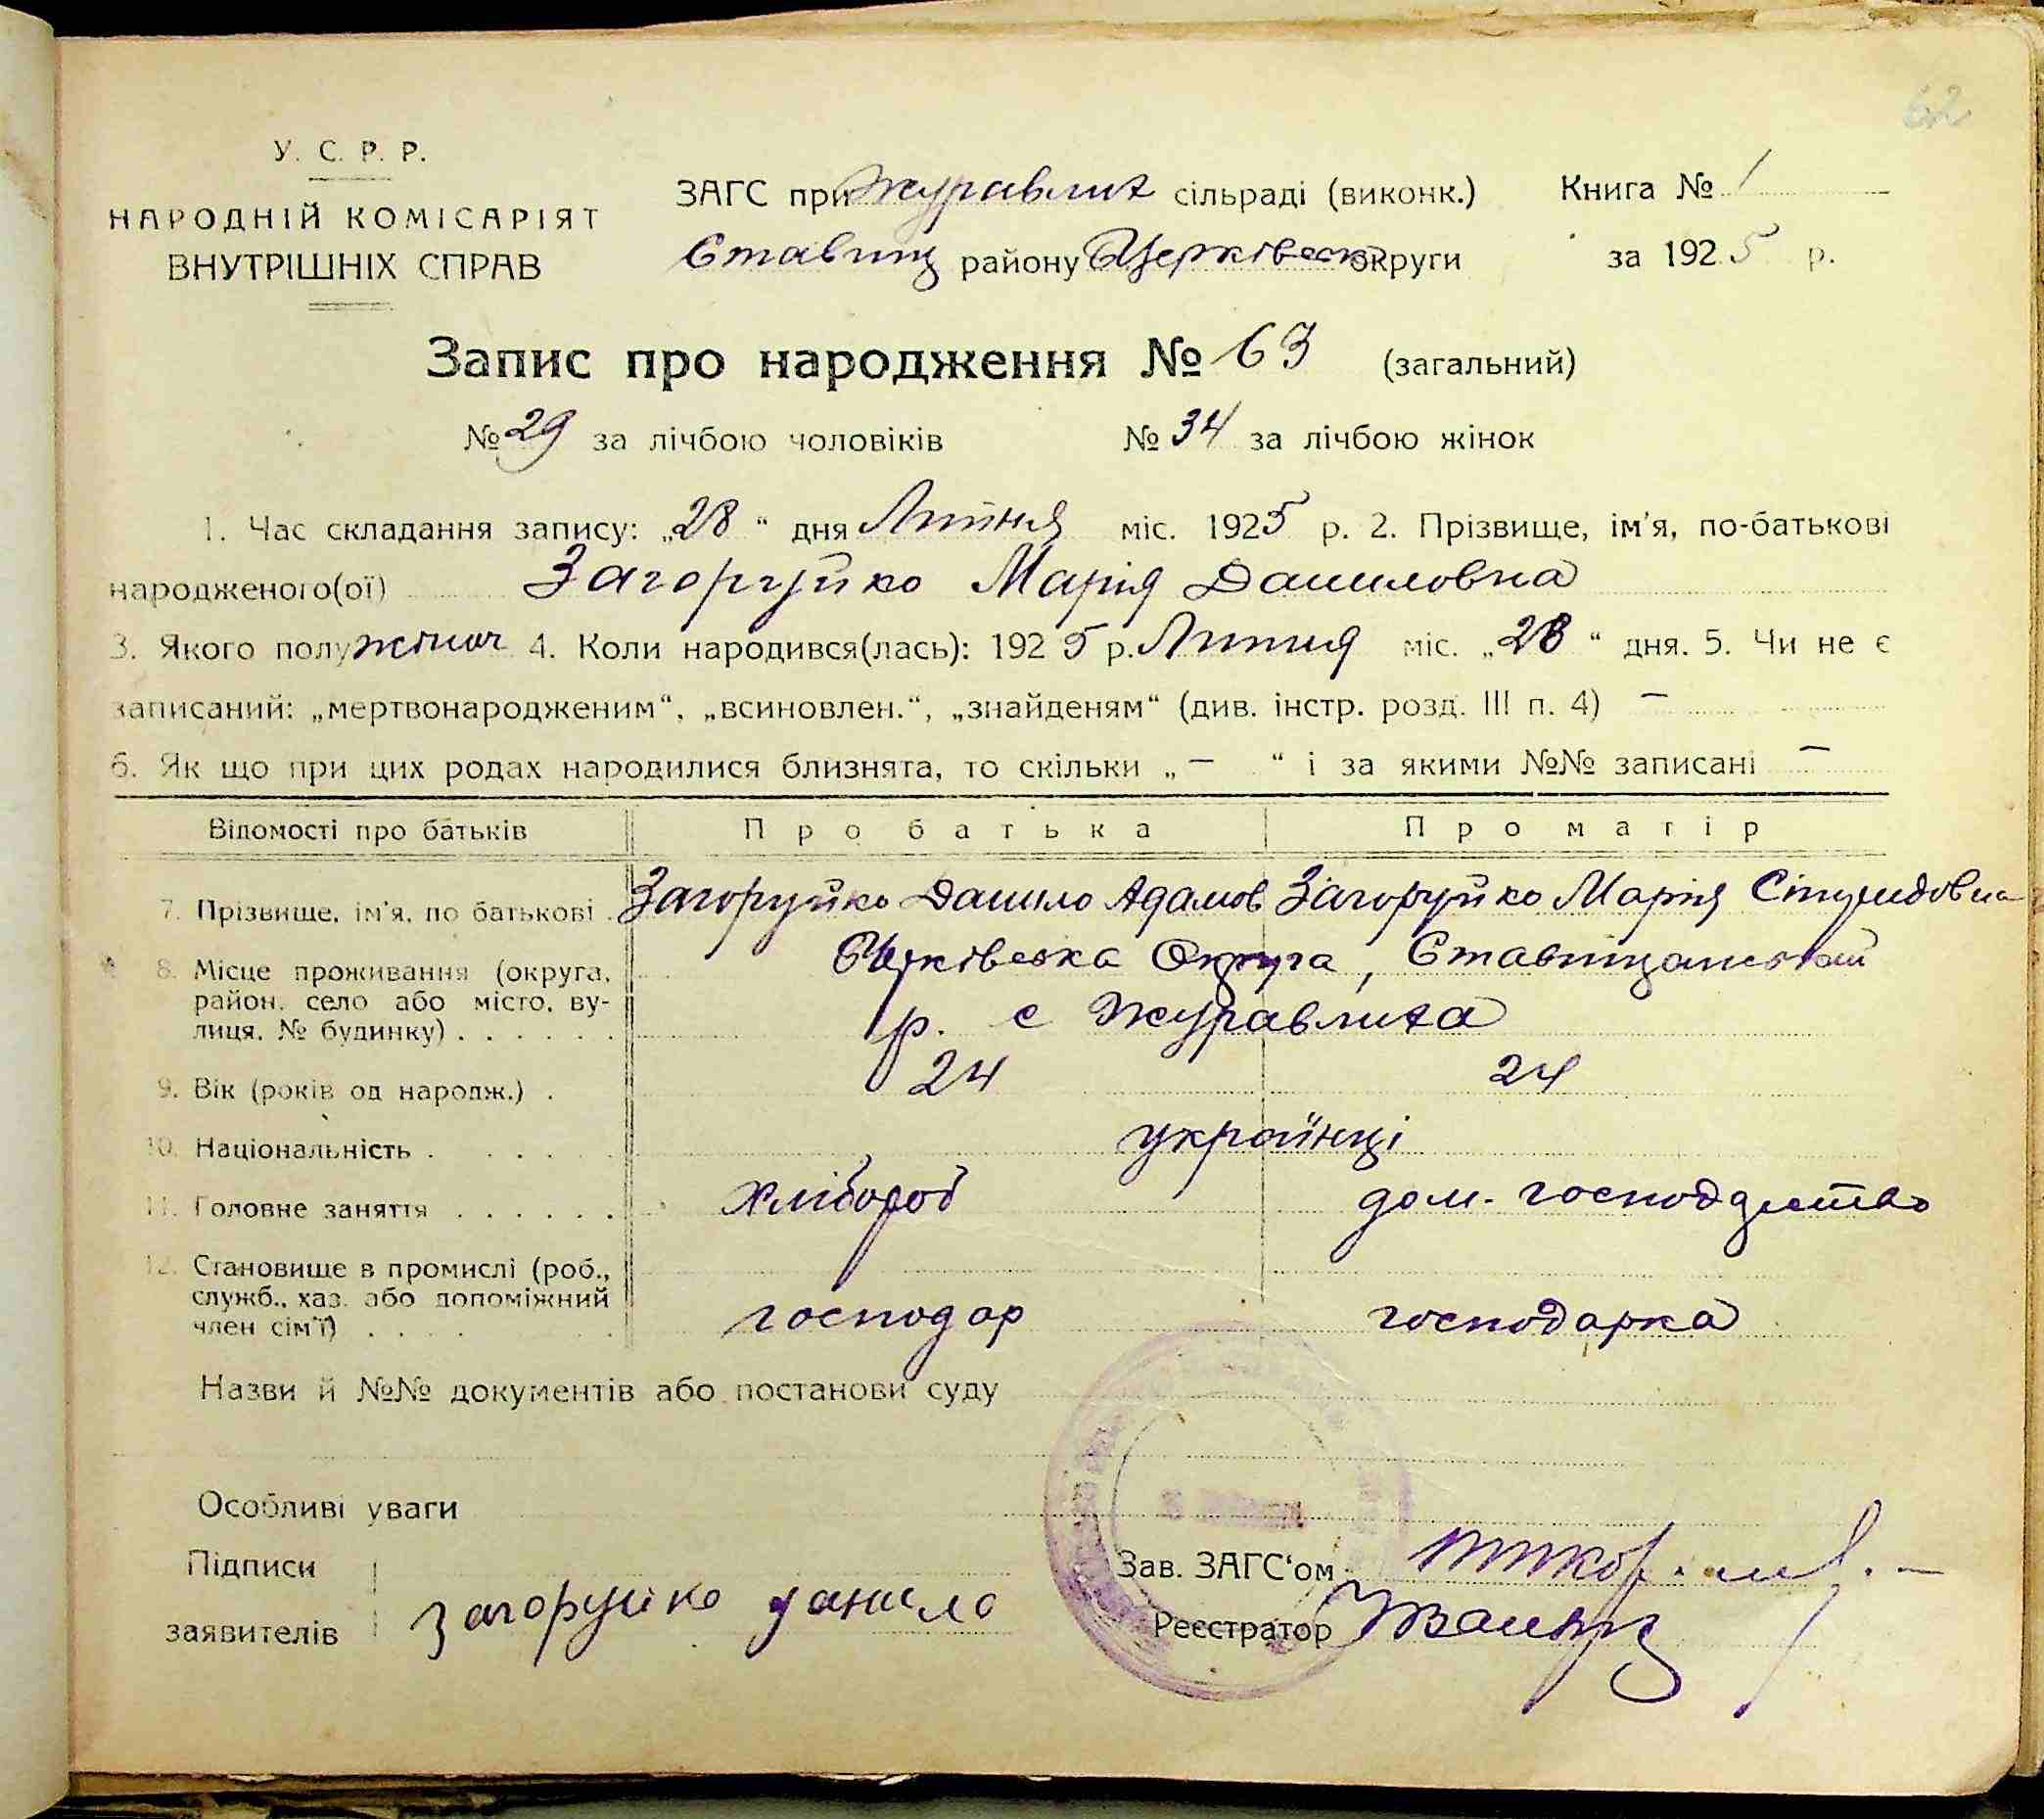 62
У. С. Р. Р.
НАРОДНІЙ КОМІСАРІЯТ
ВНУТРІШНІХ СПРАВ
ЗАГС при Журавлих сільраді (виконк.) Книга № 1
Ставищ району Б Церківськ округи за 1925 р.
Запис про народження № 63 (загальний)
№ 29 за лічбою чоловіків № 34 за лічбою жінок
1. Час складання запису: „28“ дня Липня міс. 1925 р. 2. Прізвище, ім'я, по-батькові
народженого(ої) Загоруйко Марія Даниловна
3. Якого полу жіноч 4. Коли народився(лась): 1925 р. Липня міс. „28“ дня. 5. Чи не є
записаний: „мертвонародженим“, „всиновлен.“, „знайденям“ (див. інстр. розд. III п. 4) —
6. Як що при цих родах народилися близнята, то скільки „—“ і за якими №№ записані —
Відомості про батьків Про батька Про матір
7. Прізвище, ім'я, по батькові . Загоруйко Данило Адамов Загоруйко Марія
8. Місце проживання (округа, Б Церківська Округа, Ставищанський
район, село або місто, ву-
лиця, № будинку) . . . . . . р. с Журавлиха
9. Вік (років од народж.) . 24 24
10. Національність . . . . . українці
11. Головне заняття . . . . . . хлібороб дом. господарство
12. Становище в промислі (роб.,
служб., хаз. або допоміжний
член сім'ї) . . . . господар господарка
Назви й №№ документів або постанови суду
Особливі уваги
Підписи
заявителів загоруйко данило
Зав. ЗАГС‘ом
Реєстратор